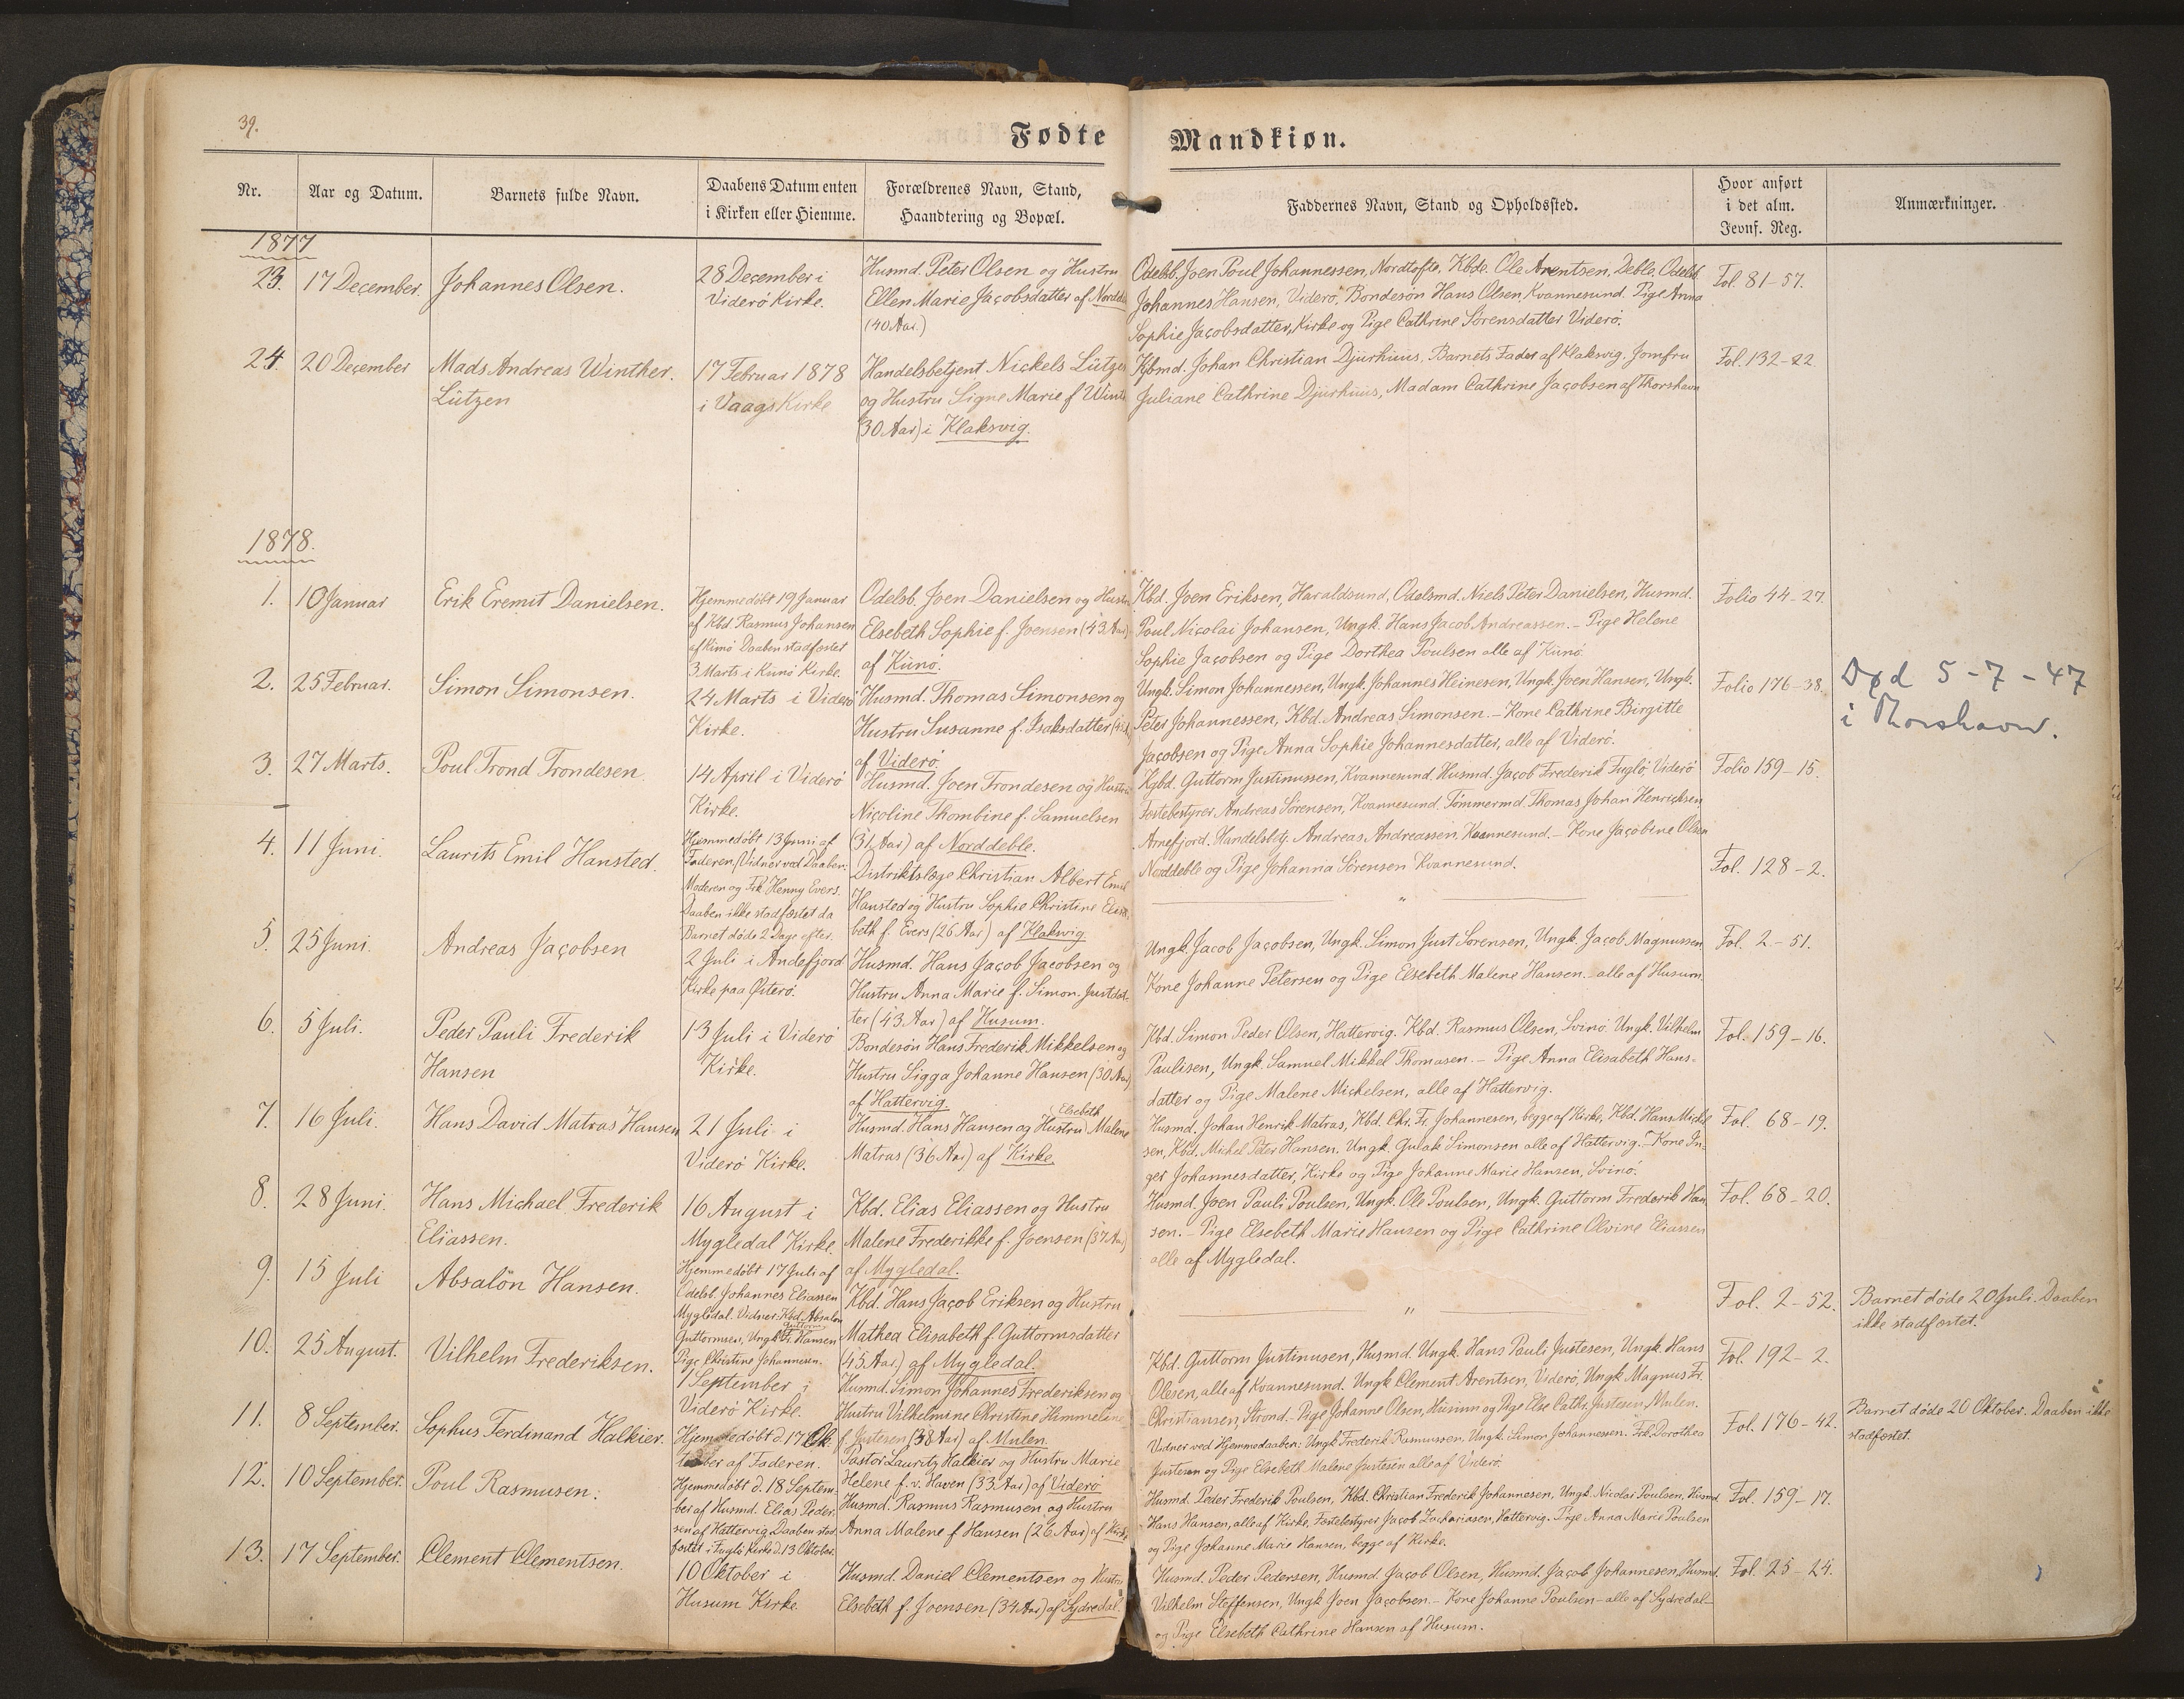 39.
Fødte
Mandkiøn.
Nr.
Aar og Datum.
Barnets fulde Navn.
Daabens Datum enten
i Kirken eller Hiemme.
Forældrenes Navn, Stand,
Haandtering og Bopæl.
Faddernes Navn, Stand og Opholdssted.
Hvor anført
i det alm.
Jevnf. Reg.
Anmærkninger.
1877
23.
17 December.
Johannes Olsen.
28 December i
Viderö Kirke.
Husmd. Peter Olsen og Hustru
Ellen Marie Jacobsdatter af
(40 Aar.)
Odelsb. Joen Poul Johannessen, Nordtofte, Kbde. Ole Arentsen, Deble, Odelsb.
Johannes Hansen, Viderö, Bondesön Hans Olsen, Kvannesund. Pige Anna
Sophie Jacobsdatter, Kirke og Pige Cathrine Sörensdatter Viderö.
Fol. 81-57.
24.
20 December
Mads Andreas Winther
Lützen
17 Februar 1878
i Vaags Kirke
Handelsbetjent Nickels Lützen
og Hustru Signe Marie f Winth
(30 Aar) i Klaksvig.
Kjbmd. Johan Christian Djurhuus, Barnets Fader af Klaksvig, Jomfru
Juliane Cathrine Djurhuus, Madam Cathrine Jacobsen af Thorshavn
Fol. 132-22
1878.
1.
10 Januar
Erik Eremit Danielsen.
Hjemmedöbt 19 Januar
af Kbd. Rasmus Johansen
af Kunö Daaben stadfæstet
3 Marts i Kunö Kirke.
Odelsb. Joen Danielsen og Hustru
Elsebeth Sophie f. Joensen (43 Aar)
af Kunö.
Kbd. Joen Eriksen, Haraldsund, Odelsmd. Niels Peter Danielsen, Husmd.
Poul Nicolai Johansen, Ungk. Hans Jacob Andreassen. - Pige Helene
Sophie Jacobsen og Pige Dorthea Poulsen alle af Kunö.
Folio 44-27.
2.
25 Februar.
Simon Simonsen.
24 Marts i Viderö
Kirke.
Husmd. Thomas Simonsen og
Hustru Susanne f. Isaksdatter
af Viderö.
Ungk. Simon Johannessen, Ungk. Johannes Heinesen, Ungk. Joen Hansen, Ungk.
Peter Johannessen, Kbd. Andreas Simonsen. - Kone Cathrine Birgitte
Jacobsen og Pige Anna Sophie Johannesdatter, alle af Viderö.
Folio 176-38.
Død 5-7-47
i Thorshavn.
3.
27 Marts.
Poul Trond Trondesen
14 April i Viderö
Kirke.
Husmd. Joen Trondesen og Hustru
Nicoline Thombine f. Samuelsen
(31 Aar) af Norddeble.
Kgbd. Guttorm Justinussen, Kvannesund. Husmd. Jacob Frederik Fuglö, Viderö
Fæstebestyrer Andreas Sörensen, Kvannesund, Tömmermd. Thomas Johan Henricksen,
Arnefjord. Handelsbtj. Andreas Andreassen. Kvannesund. - Kone Jacobine Olsen
Norddeble og Pige Johanna Sörensen Kvannesund.
Folio 159-15.
4.
11 Juni.
Laurits Emil Hansted.
Hjemmedöbt 13 Juni af
Faderen, (Vidner ved Daaben:
Moderen og Frk. Henny Evers.
Daaben ikke stadfæstet da
Barnet döde 2 Dage efter.
Distriktslæge Christian Albert Emil
Hansted og Hustru Sophie Christine Elisa-
beth f. Evers (26 Aar) af Klaksvig
"
Fol. 128-2.
5.
25 Juni.
Andreas Jacobsen
2 Juli i Andefjord
Kirke paa Österö.
Husmd. Hans Jacob Jacobsen og
Hustru Anna Marie f. Simon. Justdat-
ter (43 Aar) af Husum.
Ungk. Jacob Jacobsen, Ungk. Simon Just Sörensen, Ungk. Jacob Magnussen
Kone Johanne Petersen og Pige Elsebeth Malene Hansen. - alle af Husum.
Fol. 2-51.
6.
5 Juli.
Peder Pauli Frederik
Hansen
13 Juli i Viderö
Kirke.
Bondesön Hans Frederik Mikkelsen og
Hustru Sigga Johanne Hansen (30 Aar)
af Hattervig.
Kbd. Simon Peder Olsen, Hattervig. Kbd. Rasmus Olsen, Svinö. Ungk. Vilhelm
Paulisen, Ungk. Samuel Mikkel Thomasen. - Pige Anna Elisabeth Hans-
datter og Pige Malene Mickelsen, alle af Hattervig.
Fol. 159-16.
7.
16 Juli.
Hans David Matras Hansen
21 Juli i
Viderö Kirke.
Elsebeth
Husmd. Hans Hansen og Hustru Malene
Matras (36 Aar) af Kirke.
Husmd. Johan Henrik Matras, Kbd. Chr. Fr. Johannesen, begge af Kirke, Kbd. Hans Mickel
sen, Kbd. Michel Peter Hansen. Ungk. Gulak Simonsen alle af Hattervig. - Kone In-
ger Johannesdatter, Kirke og Pige Johanne Marie Hansen, Svinö.
Fol. 68-19.
8.
28 Juni.
Hans Michael Frederik
Eliassen.
16 August i
Mygledal Kirke.
Kbd. Elias Eliassen og Hustru
Malene Frederikke f. Joensen (37 Aar)
af Mygledal.
Husmd. Joen Pauli Poulsen, Ungk. Ole Poulsen, Ungk. Guttorm Frederik Han
sen. - Pige Elsebeth Marie Hansen og Pige Cathrine Olvine Eliassen
alle af Mygledal.
Fol. 68-20.
9.
15 Juli
Absalön Hansen.
Hjemmedöbt 17 Juli af
Odelsb. Johannes Eliassen
Mygledal. Vidner: Kbd. Absalon
Guttorm
Guttormsen, Ungk. Fr. Hansen
Pige Christine Johannesen.
Kbd. Hans Jacob Eriksen og Hustru
Mathea Elisabeth f. Guttormsdatter
(45 Aar.) af Mygledal.
"
Fol. 2-52.
Barnet döde 20 Juli. Daaben
ikke stadfæstet.
10.
25 August.
Vilhelm Frederiksen.
1 September i
Viderö Kirke.
Husmd. Simon Johannes Frederiksen og
Hustru Vilhelmine Christine Himmeline
f. Justesen (38 Aar) af Mulen.
Kbd. Guttorm Justinusen, Husmd. Ungk. Hans Pauli Justesen, Ungk. Hans
Olesen, alle af Kvannesund. Ungk Clement Arentsen, Viderö, Ungk Magnus Fr.
Christiansen, Strond. - Pige Johanne Olsen, Husum og Pige Else Cathr. Justesen, Mulen.
Fol. 192-2.
11.
8 September.
Sophus Ferdinand Halkier.
Hjemmedöbt d. 17 Ok
tober af Faderen.
Pastor Lauritz Halkier og Hustru Marie
Helene f. v. Haven (33 Aar) af Viderö
Vidner ved Hjemmedaaben: Ungk Frederik Rasmussen, Ungk. Simon Johannessen. Frk. Dorothea
Justesen og Pige Elsebeth Malene Justesen alle af Viderö.
Fol. 176-42.
Barnet döde 20 Oktober. Daaben ikke
stadfæstet.
12.
10 September.
Poul Rasmusen.
Hjemmedöbt d. 18 Septem-
ber af Husmd. Elias Peder-
sen af Hattervig. Daaben stad
fæstet i Fuglö Kirke d. 13 Oktober.
Husmd. Rasmus Rasmusen og Hustru
Anna Malene f Hansen (26 Aar) af Kirke
Husmd. Peder Frederik Poulsen, Kbd. Christian Frederik Johannesen, Ungk. Nicolai Poulsen, Husmd
Hans Hansen, alle af Kirke, Fæstebestyrer Jacob Zachariasen, Hattervig. Pige Anna Marie Poulsen
og Pige Johanne Marie Hansen, begge af Kirke.
Fol. 159-17.
13.
17 September.
Clement Clementsen.
10 Oktober i
Husum Kirke
Husmd. Daniel Clementsen og Hustru
Elsebeth f. Joensen (34 Aar) af Sydredal
Husmd. Peder Pedersen, Husmd Jacob Olsen, Husmd. Jacob Johannesen, Husmd.
Vilhelm Steffensen, Ungk Joen Jacobsen. - Kone Johanne Poulsen - alle af Sydredal
og Pige Elsebeth Cathrine Hansen af Husum.
Fol. 25-24.